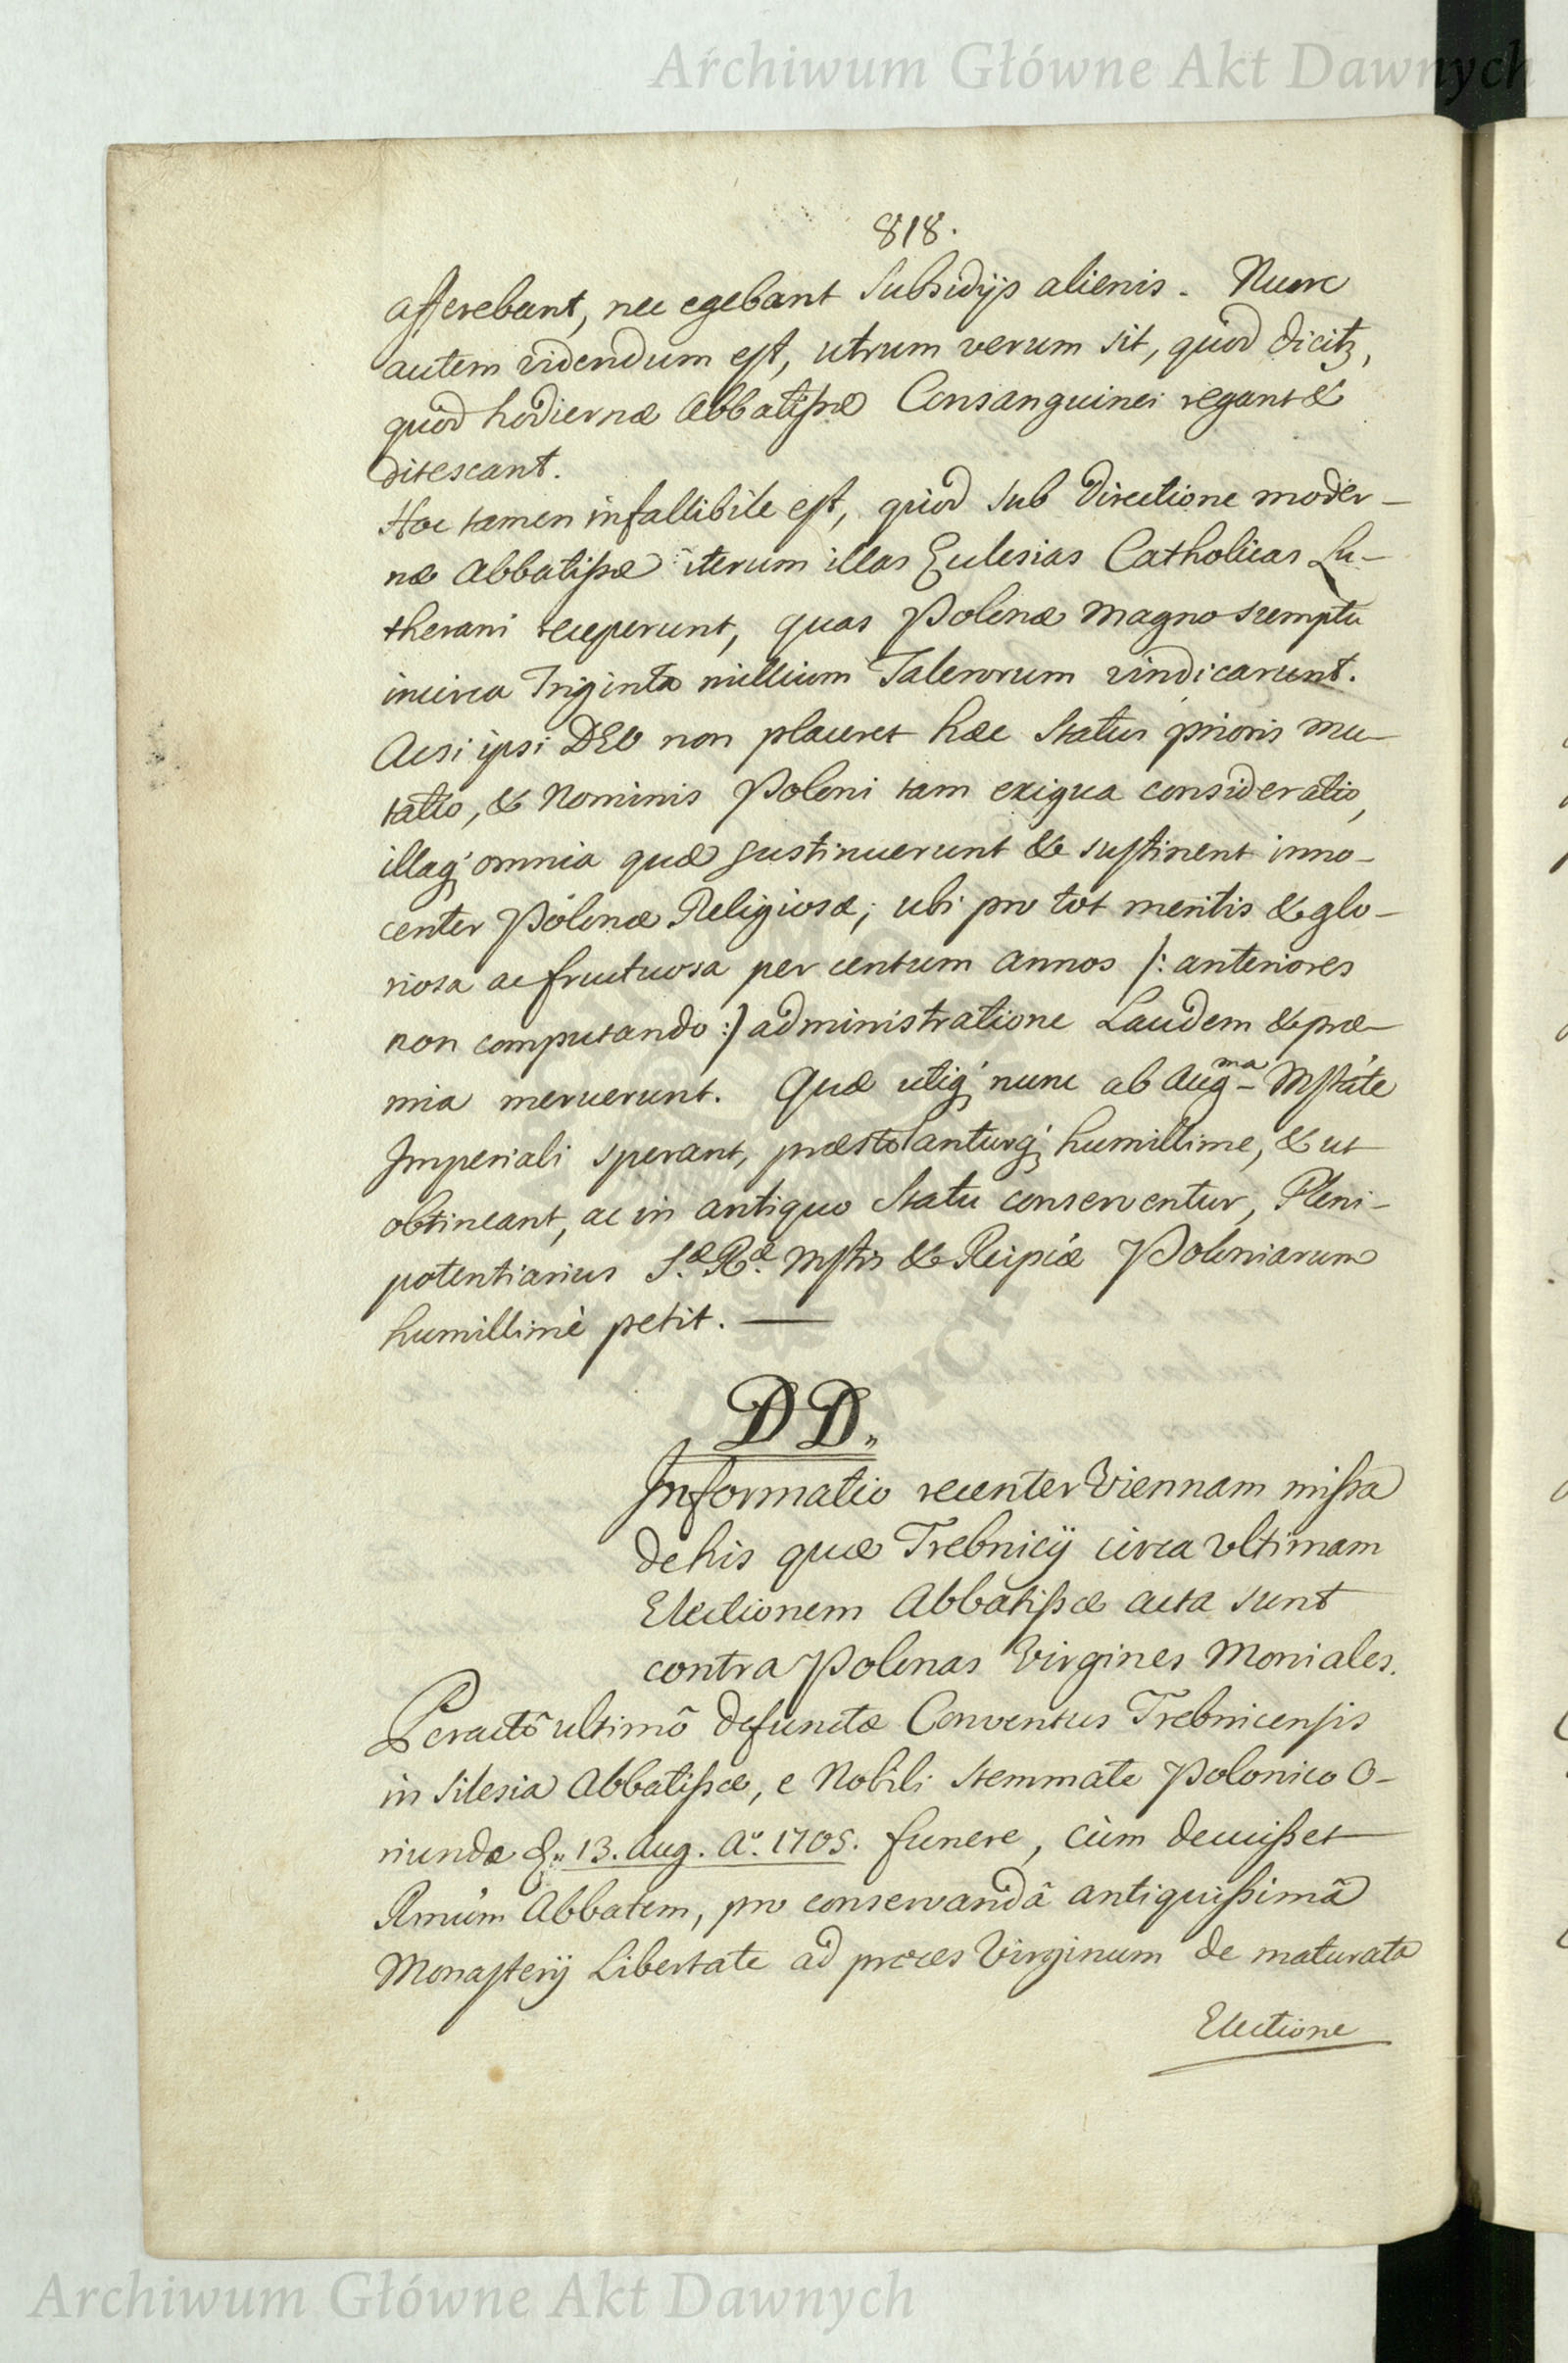 Archiwum Główne Akt Dawnych
818.
afferebant, nec egebant Subsidijs alienis. Nunc
autem videndum est, utrum verum sit, quod dicitȝ,
quòd hodiernæ Abbatißæ Consanguinei regant &
ditescant.
Hoc tamen infallibile est, quòd sub Directione moder-
næ Abbatißæ iterum illas Ecclesias Catholicas Lu-
therani receperunt, quas Polonæ magno sumptu
incirca Triginta millium Talerorum vindicarunt.
Acsi ipsi DEO non placeret hæc Status prioris mu-
tatio, & Nominis Poloni tam exigua consideratio,
illaq; omnia quæ sustinuerunt & sustinent inno-
center Polonæ Religiosæ; ubi pro tot meritis & glo-
riosa ac fructuosa per centum annos /: anteriores
non computando :/ administratione Laudem & præ-
mia meruerunt. Quæ utiq; nunc ab Aug-ma Mstate
Imperiali sperant, præstolanturq; humillime, & ut
obtineant, ac in antiquo Statu conserventur, Pleni-
potentiarius S.æ R.æ Mstis & Reipcæ Poloniarum
humillimè petit.
DD.,
Informatio recenter Viennam mißa
de his quæ Trebnicij circa ultimam
Electionem Abbatißæ acta sunt
contra Polonas Virgines Moniales.
Peractô ultimô defunctæ Conventus Trebnicensis
in Silesia Abbatißæ, e Nobili Stemmate Polonico O-
riundæ d., 13. Aug. Aº. 1705. funere, cùm decuißet
Rmum Abbatem, pro conservandâ antiquißimâ
Monasterij Libertate ad preces Virginum de maturata
Electione
Archiwum Główne Akt Dawnych